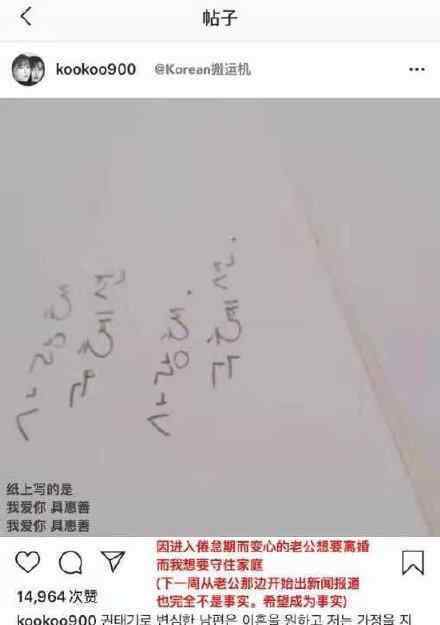 帖子
kookoo900 @Korean搬运机
纸上写的是
我爱你 具惠善
我爱你 具惠善
因进入倦怠期而变心的老公想要离婚
而我想要守住家庭
(下一周从老公那边开始出新闻报道
也完全不是事实。希望成为事实)
14,964 次赞
kookoo900 권태기로 변심한 남편은 이혼을 원하고 저는 가정을 지